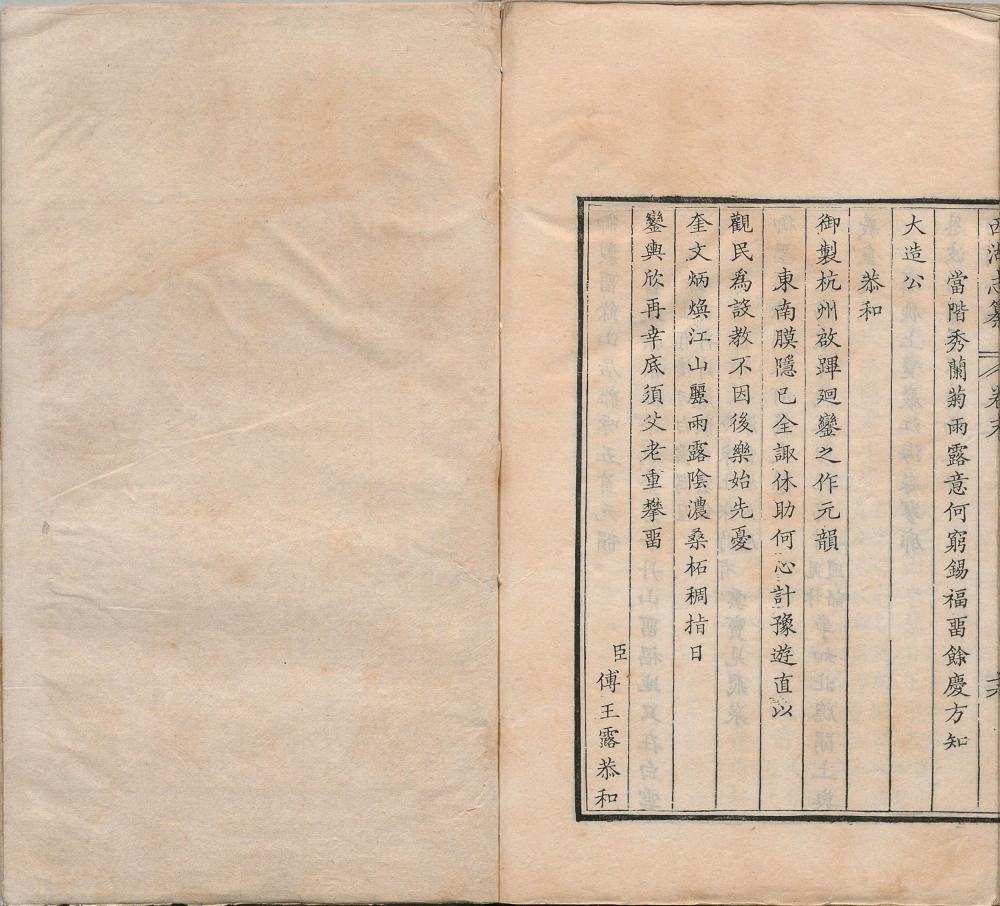 西湖志纂 卷末 六
當階秀蘭菊雨露意何窮錫福畱餘慶方知
大造公
恭和
御製杭州啟蹕廻鑾之作元韻
東南膜隱已全諏休助何心計豫遊直以
觀民爲設教不因後樂始先憂
奎文炳煥江山麗雨露陰濃桑柘稠指日
鑾輿欣再幸底須父老重攀畱
臣傅王露恭和